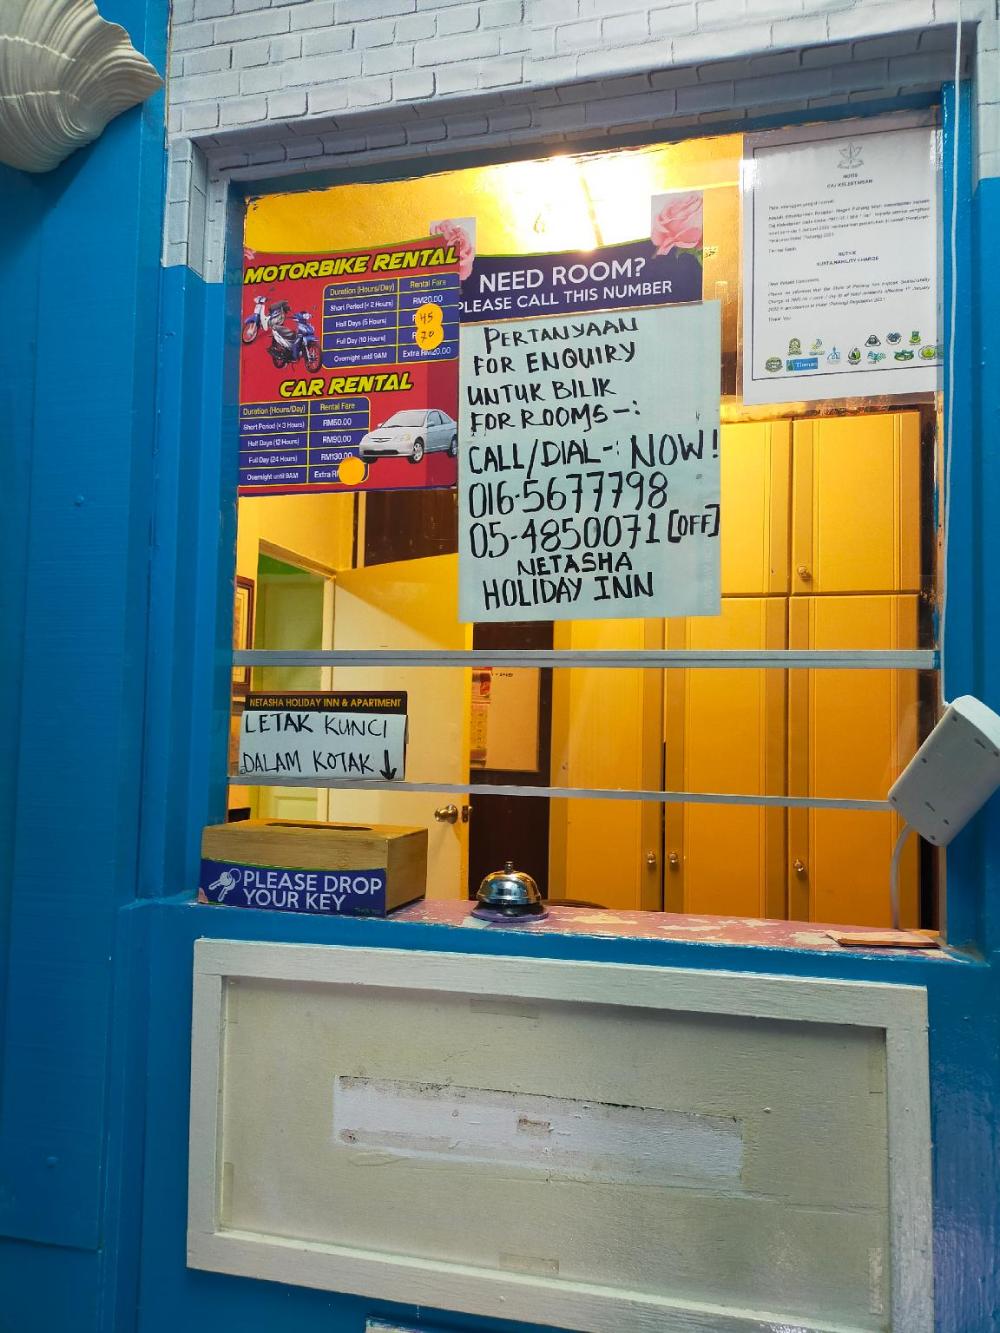 MOTORBIKE RENTAL
Duration (Hours/Day) Rental Fare
Short Period (< 2 Hours) RM20.00
Half Days (5 Hours) 45
Full Day (10 Hours) 70
Overnight until 9AM Extra RM20.00
CAR RENTAL
Duration (Hours/Day) Rental Fare
Short Period (< 3 Hours) RM50.00
Half Days (12 Hours) RM90.00
Full Day (24 Hours) RM130.00
Overnight until 9AM Extra
NEED ROOM?
PLEASE CALL THIS NUMBER
PERTANYAAN
FOR ENQUIRY
UNTUK BILIK
FOR ROOMS-:
CALL/DIAL-: NOW!
016-5677798
05-4850071 [OFF]
NETASHA
HOLIDAY INN
NOTIS
CAJ KELESTARIAN
NOTICE
SUSTAINABILITY CHARGE
Thank You
NETASHA HOLIDAY INN & APARTMENT
LETAK KUNCI
DALAM KOTAK ↓
PLEASE DROP
YOUR KEY